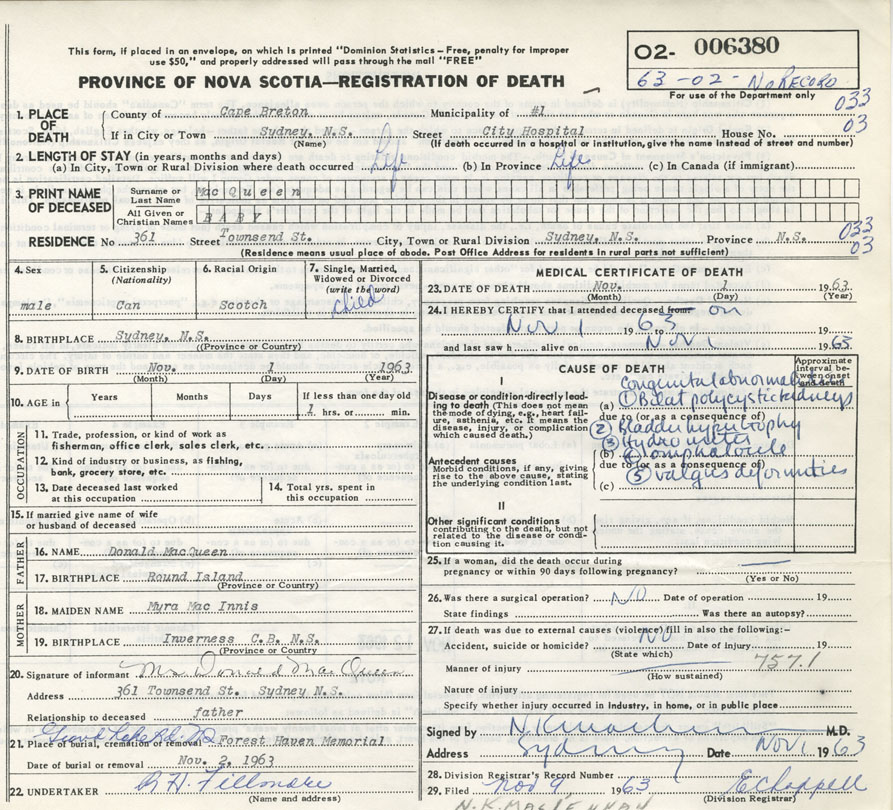 This form, if placed in an envelope, on which is printed "Dominion Statistics – Free, penalty for improper
use $50," and properly addressed will pass through the mail "FREE"
PROVINCE OF NOVA SCOTIA—REGISTRATION OF DEATH
02- 006380
63-02- No RECORD
For use of the Department only
033
03
1. PLACE OF DEATH
County of Cape Breton Municipality of #1
If in City or Town Sydney, N.S. Street City Hospital House No.
(Name) (If death occurred in a hospital or institution, give the name instead of street and number)
2. LENGTH OF STAY (in years, months and days)
(a) In City, Town or Rural Division where death occurred Life (b) In Province Life (c) In Canada (if immigrant)
3. PRINT NAME OF DECEASED
Surname or Last Name MacQueen
All Given or Christian Names BABY
RESIDENCE No 361 Street Townsend St. City, Town or Rural Division Sydney, N.S. Province N.S.
033
03
(Residence means usual place of abode. Post Office Address for residents in rural parts not sufficient)
4. Sex
male
5. Citizenship
(Nationality)
Can
6. Racial Origin
Scotch
7. Single, Married,
Widowed or Divorced
(write the word)
child
8. BIRTHPLACE Sydney, N.S.
(Province or Country)
9. DATE OF BIRTH Nov. 1 1963
(Month) (Day) (Year)
10. AGE in
Years Months Days If less than one day old
1 hrs. or min.
OCCUPATION
11. Trade, profession, or kind of work as
fisherman, office clerk, sales clerk, etc.
12. Kind of industry or business, as fishing,
bank, grocery store, etc.
13. Date deceased last worked
at this occupation
14. Total yrs. spent in
this occupation
15. If married give name of wife
or husband of deceased
FATHER
16. NAME Donald MacQueen
17. BIRTHPLACE Round Island
(Province or Country)
MOTHER
18. MAIDEN NAME Myra Mac Innis
19. BIRTHPLACE Inverness C.B. N.S.
(Province or Country)
20. Signature of informant Mr Donald MacQueen
Address 361 Townsend St. Sydney N.S.
Relationship to deceased father
21. Place of burial, cremation or removal Forest Haven Memorial
Date of burial or removal Nov. 2, 1963
22. UNDERTAKER Fillmore
(Name and address)
MEDICAL CERTIFICATE OF DEATH
23. DATE OF DEATH Nov. 1 1963
(Month) (Day) (Year)
24. I HEREBY CERTIFY that I attended deceased from on
Nov 1 1963 to 19
and last saw h alive on Nov 1 1963
CAUSE OF DEATH
Approximate interval between onset and death
I
Disease or condition directly leading to death (This does not mean the mode of dying, e.g., heart failure, asthenia, etc. It means the disease, injury, or complication which caused death.)
Congenital abnormalities
(a) ① Bilat polycystic kidneys
due to (or as a consequence of)
② Bladder hypertrophy
③ Hydroureter
Antecedent causes
Morbid conditions, if any, giving rise to the above cause, stating the underlying condition last.
(b) ④ omphalocile
due to (or as a consequence of)
⑤ valgus deformities
(c)
II
Other significant conditions
contributing to the death, but not related to the disease or condition causing it.
25. If a woman, did the death occur during
pregnancy or within 90 days following pregnancy?
(Yes or No)
26. Was there a surgical operation? NO Date of operation 19
State findings Was there an autopsy?
27. If death was due to external causes (violence) fill in also the following:–
Accident, suicide or homicide? NO Date of injury 19
(State which)
Manner of injury 757.1
(How sustained)
Nature of injury
Specify whether injury occurred in Industry, in home, or in public place
Signed by M.D.
Address Sydney Date Nov 1 1963
28. Division Registrar's Record Number
29. Filed Nov 9 1963 E Chappell
(Division Registrar)